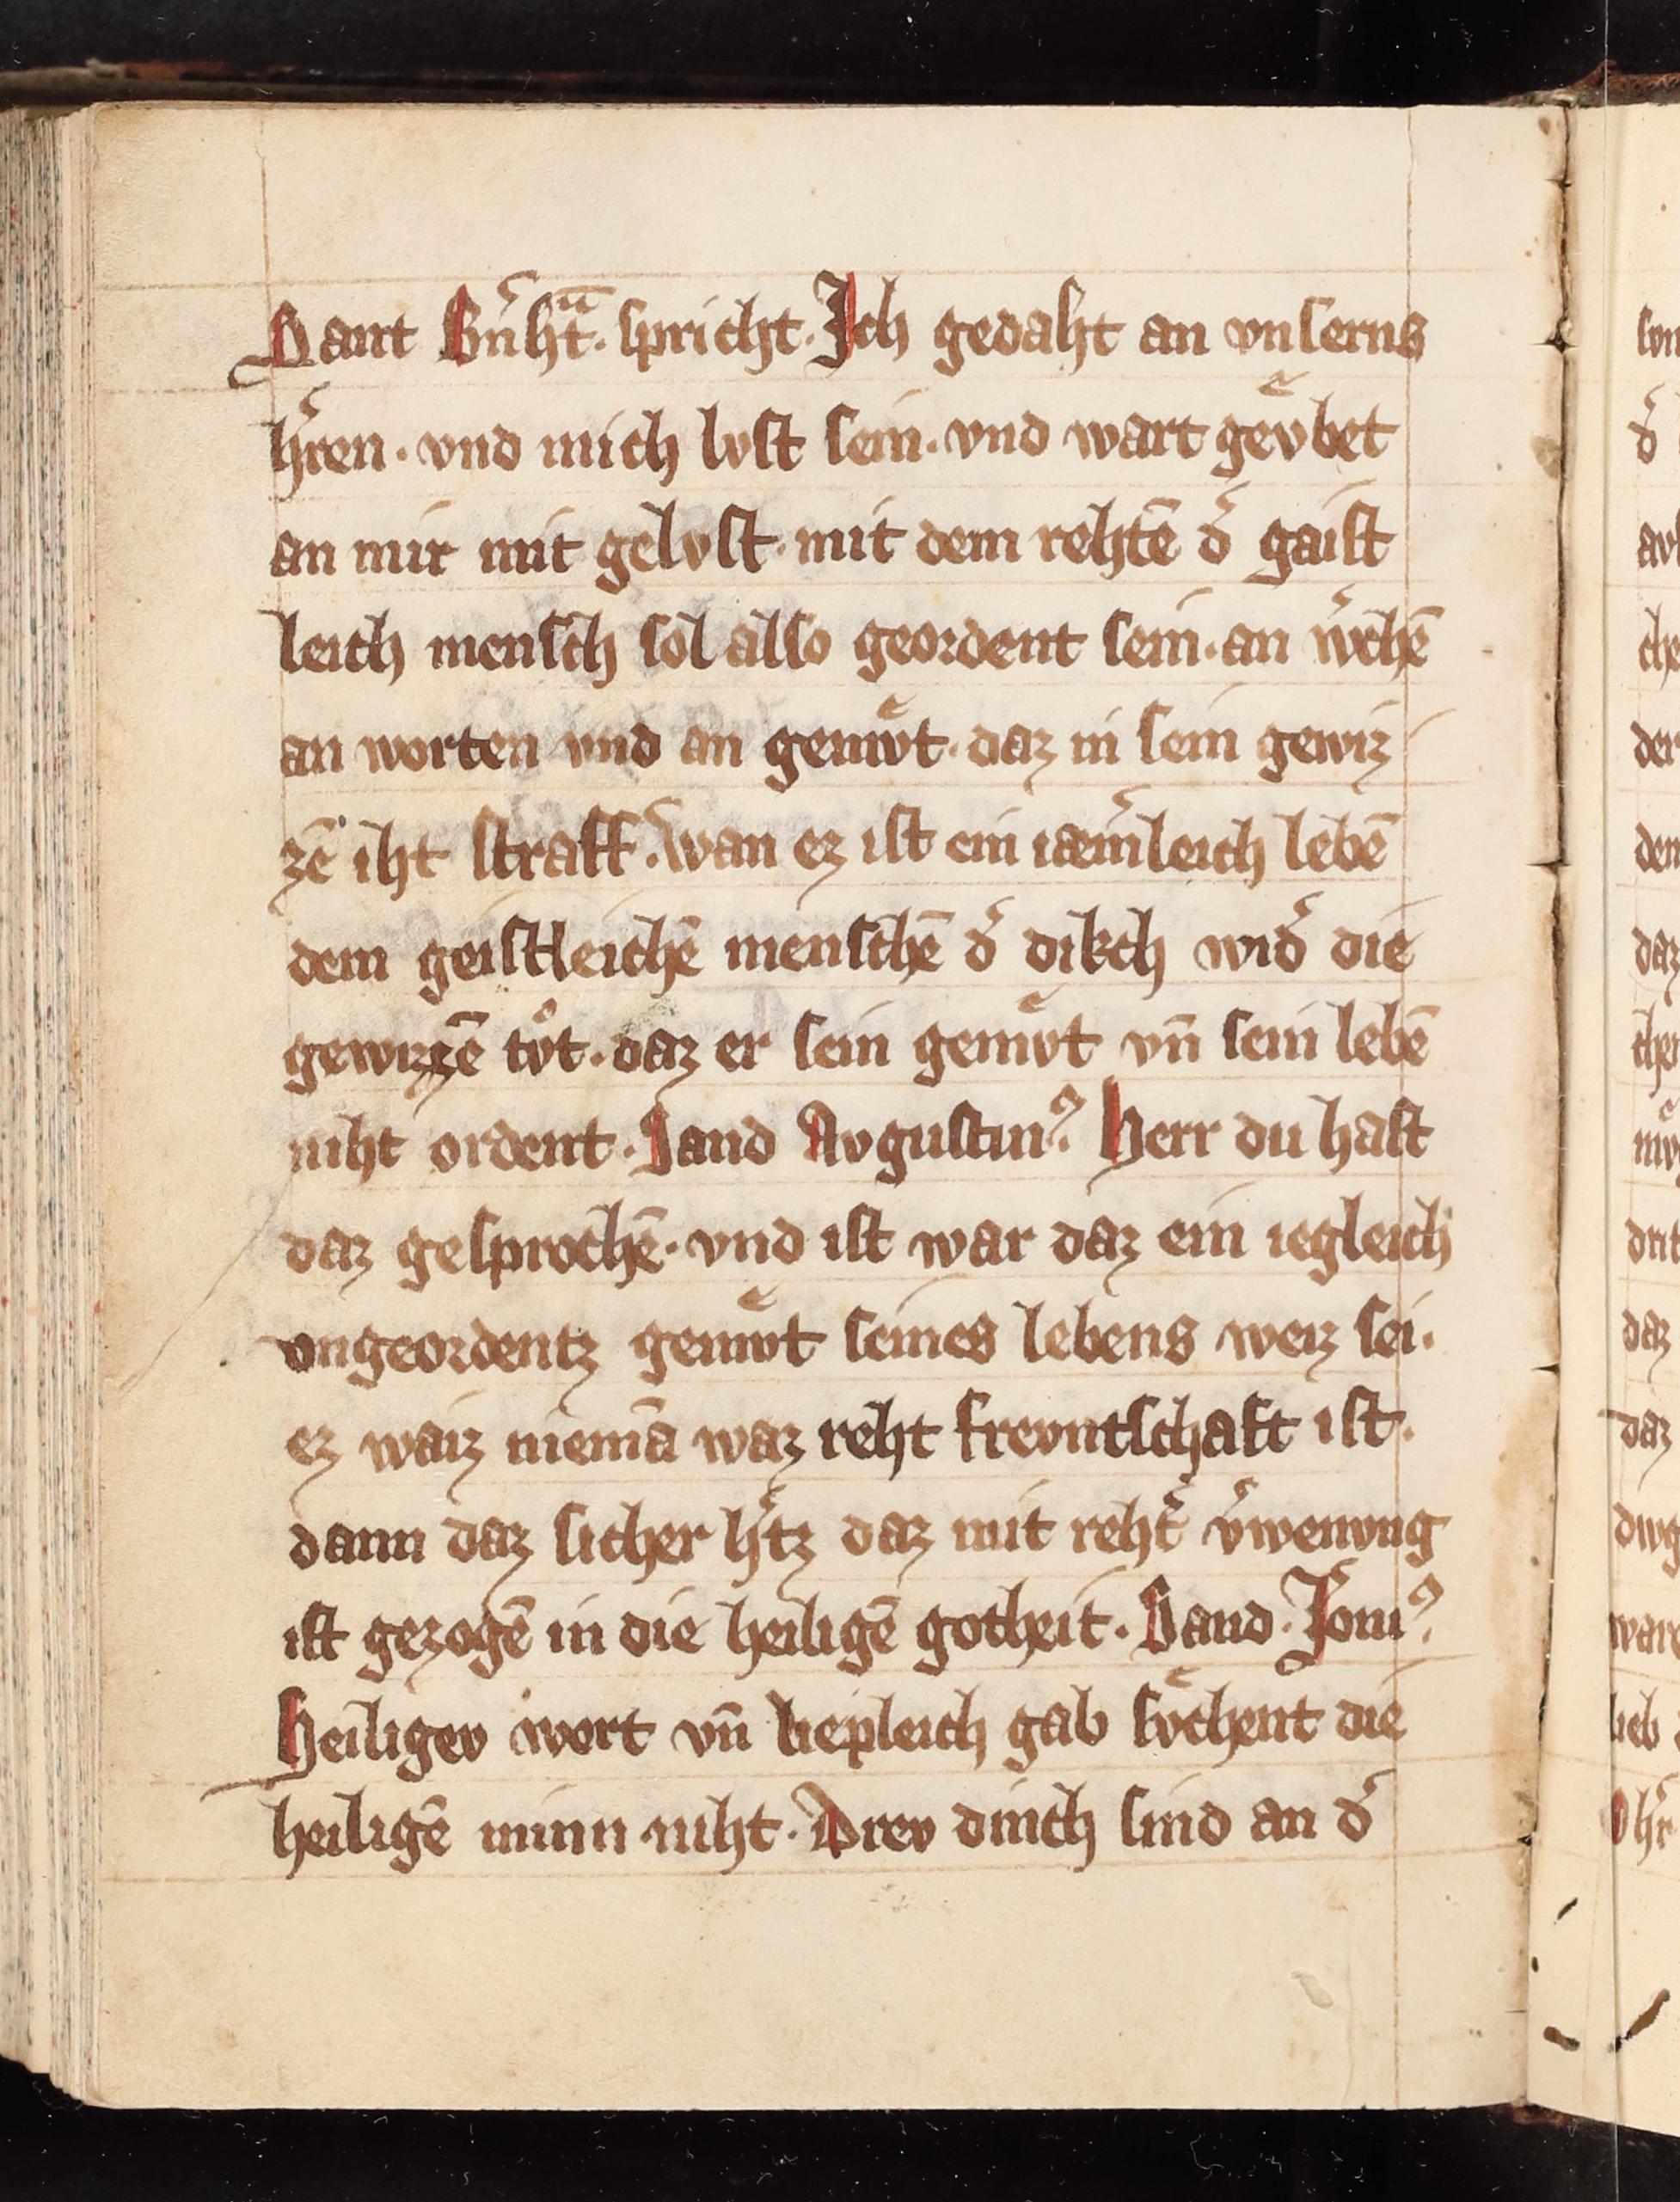 Sant Bn̄ht̄. spricht. Ich gedaht an vnserns
hr̄en. vnd mich lvst sein. vnd wart gevͤbet
an mir mit gelvst. mit dem rehtē d͛ gaist
leich mensch sol also geordent sein. an w͛chē
an worten vnd an gemvͤt. daz in sein gewiz
zē iht straff. wan ez ist ein iæm͛leich lebē
dem geistleichē menschē d͛ dikch wid͛ die
gewizzē tvͦt. daz er sein gemvͤt vn̄ sein lebē
niht ordent. Sand Avgustinꝰ. Herr du hast
daz gesprochē. vnd ist war daz ein iegleich
vngeordentz gemvͤt seines lebens weiz sei.
ez waiz niemā waz reht frevntschaft ist.
dann daz sicher h͛tz daz mit reht͛ v͛wenvng
ist gezogē in die heiligē gotheit. Sand. Jonꝰ.
Heiligev wort vn̄ liepleich gab svͤchent die
heiligē minn niht. Drev dinch sind an d͛